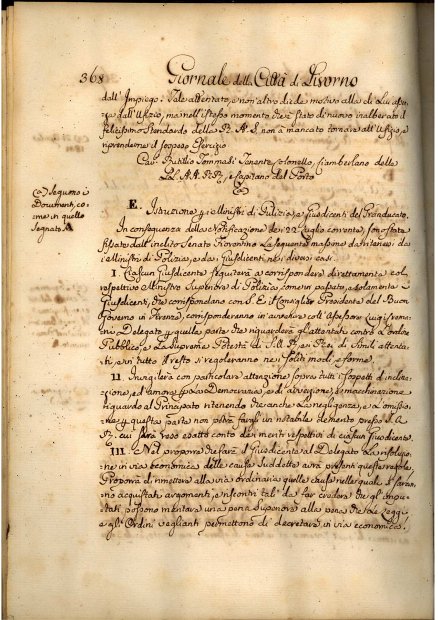 368 Giornale della Città di Livorno
dall'Impiego: Tale attentato, e non altro diede motivo alla di Lui
dall'Ufizio, ma nell'istesso momento che è stato di nuovo inalberato il
felicissimo Standardo della R. A. S. non à mancato tornare all'Ufizio, e
riprenderne il sospeso Esercizio
Cav. Rutilio Tommasi Tenente Colonello, Ciamberlano delle
LL. AA. RR., e Capitano del Porto
(a) Seguono i
Documenti, co-
me in quello
Segnato A
E. Istruzione p. i Ministri di Pulizia, e Giusdicenti del Granducato.
In conseguenza della Notificazione de' 22 Luglio corrente, sono state
fissate dall'inclito Senato Fiorentino la seguente massima da tenersi da
i Ministri di Polizia, e da i Giusdicenti ne i diversi casi.
I. Ciascun Giusdicente seguiterà a corrispondere direttamente col
respettivo Ministro Superiore di Polizia, come in passato, e solamente i
Giusdicenti, che corrispondano con S. E. il Consigliere Presidente del Buon
Governo in Firenze, corrisponderanno in avvenire coll'Assessore Luigi
Delegato p. quella parte che riguarderà gli attentati contro l'Ordine
Pubblico, e la Suprema Potestà di S. A. R., e Rei di simili attenta-
ti, e in tutto il resto si regoleranno ne i soliti modi, e forme.
II. Invigilerà con particolare attenzione sopra tutti i sospetti di inclina-
zione, ed amore p. la Democrazia, e di avversione, e macchinazione
riguardo al Principato ritenendo che anche la negligenza, e l'omissio-
ne p. questa parte non potrà farsi in notabile demerito presso S. A.
R., cui sarà reso esatto conto dei meriti respettivi di ciascun Giusdicente.
III. Nel proporre che farà il Giusdicente al Delegato la risoluzio-
ne in via economica delle cause suddette avrà presenti queste regole.
Proporrà di rimettere alla via ordinaria quelle cause nelle quali si saran-
no acquistati argomenti, e riscontri tali da far credere che gl'Impu-
tati, possono meritare una pena superiore alla pena che le Leggi
e gli Ordini veglianti permettono di decretare in via economica,